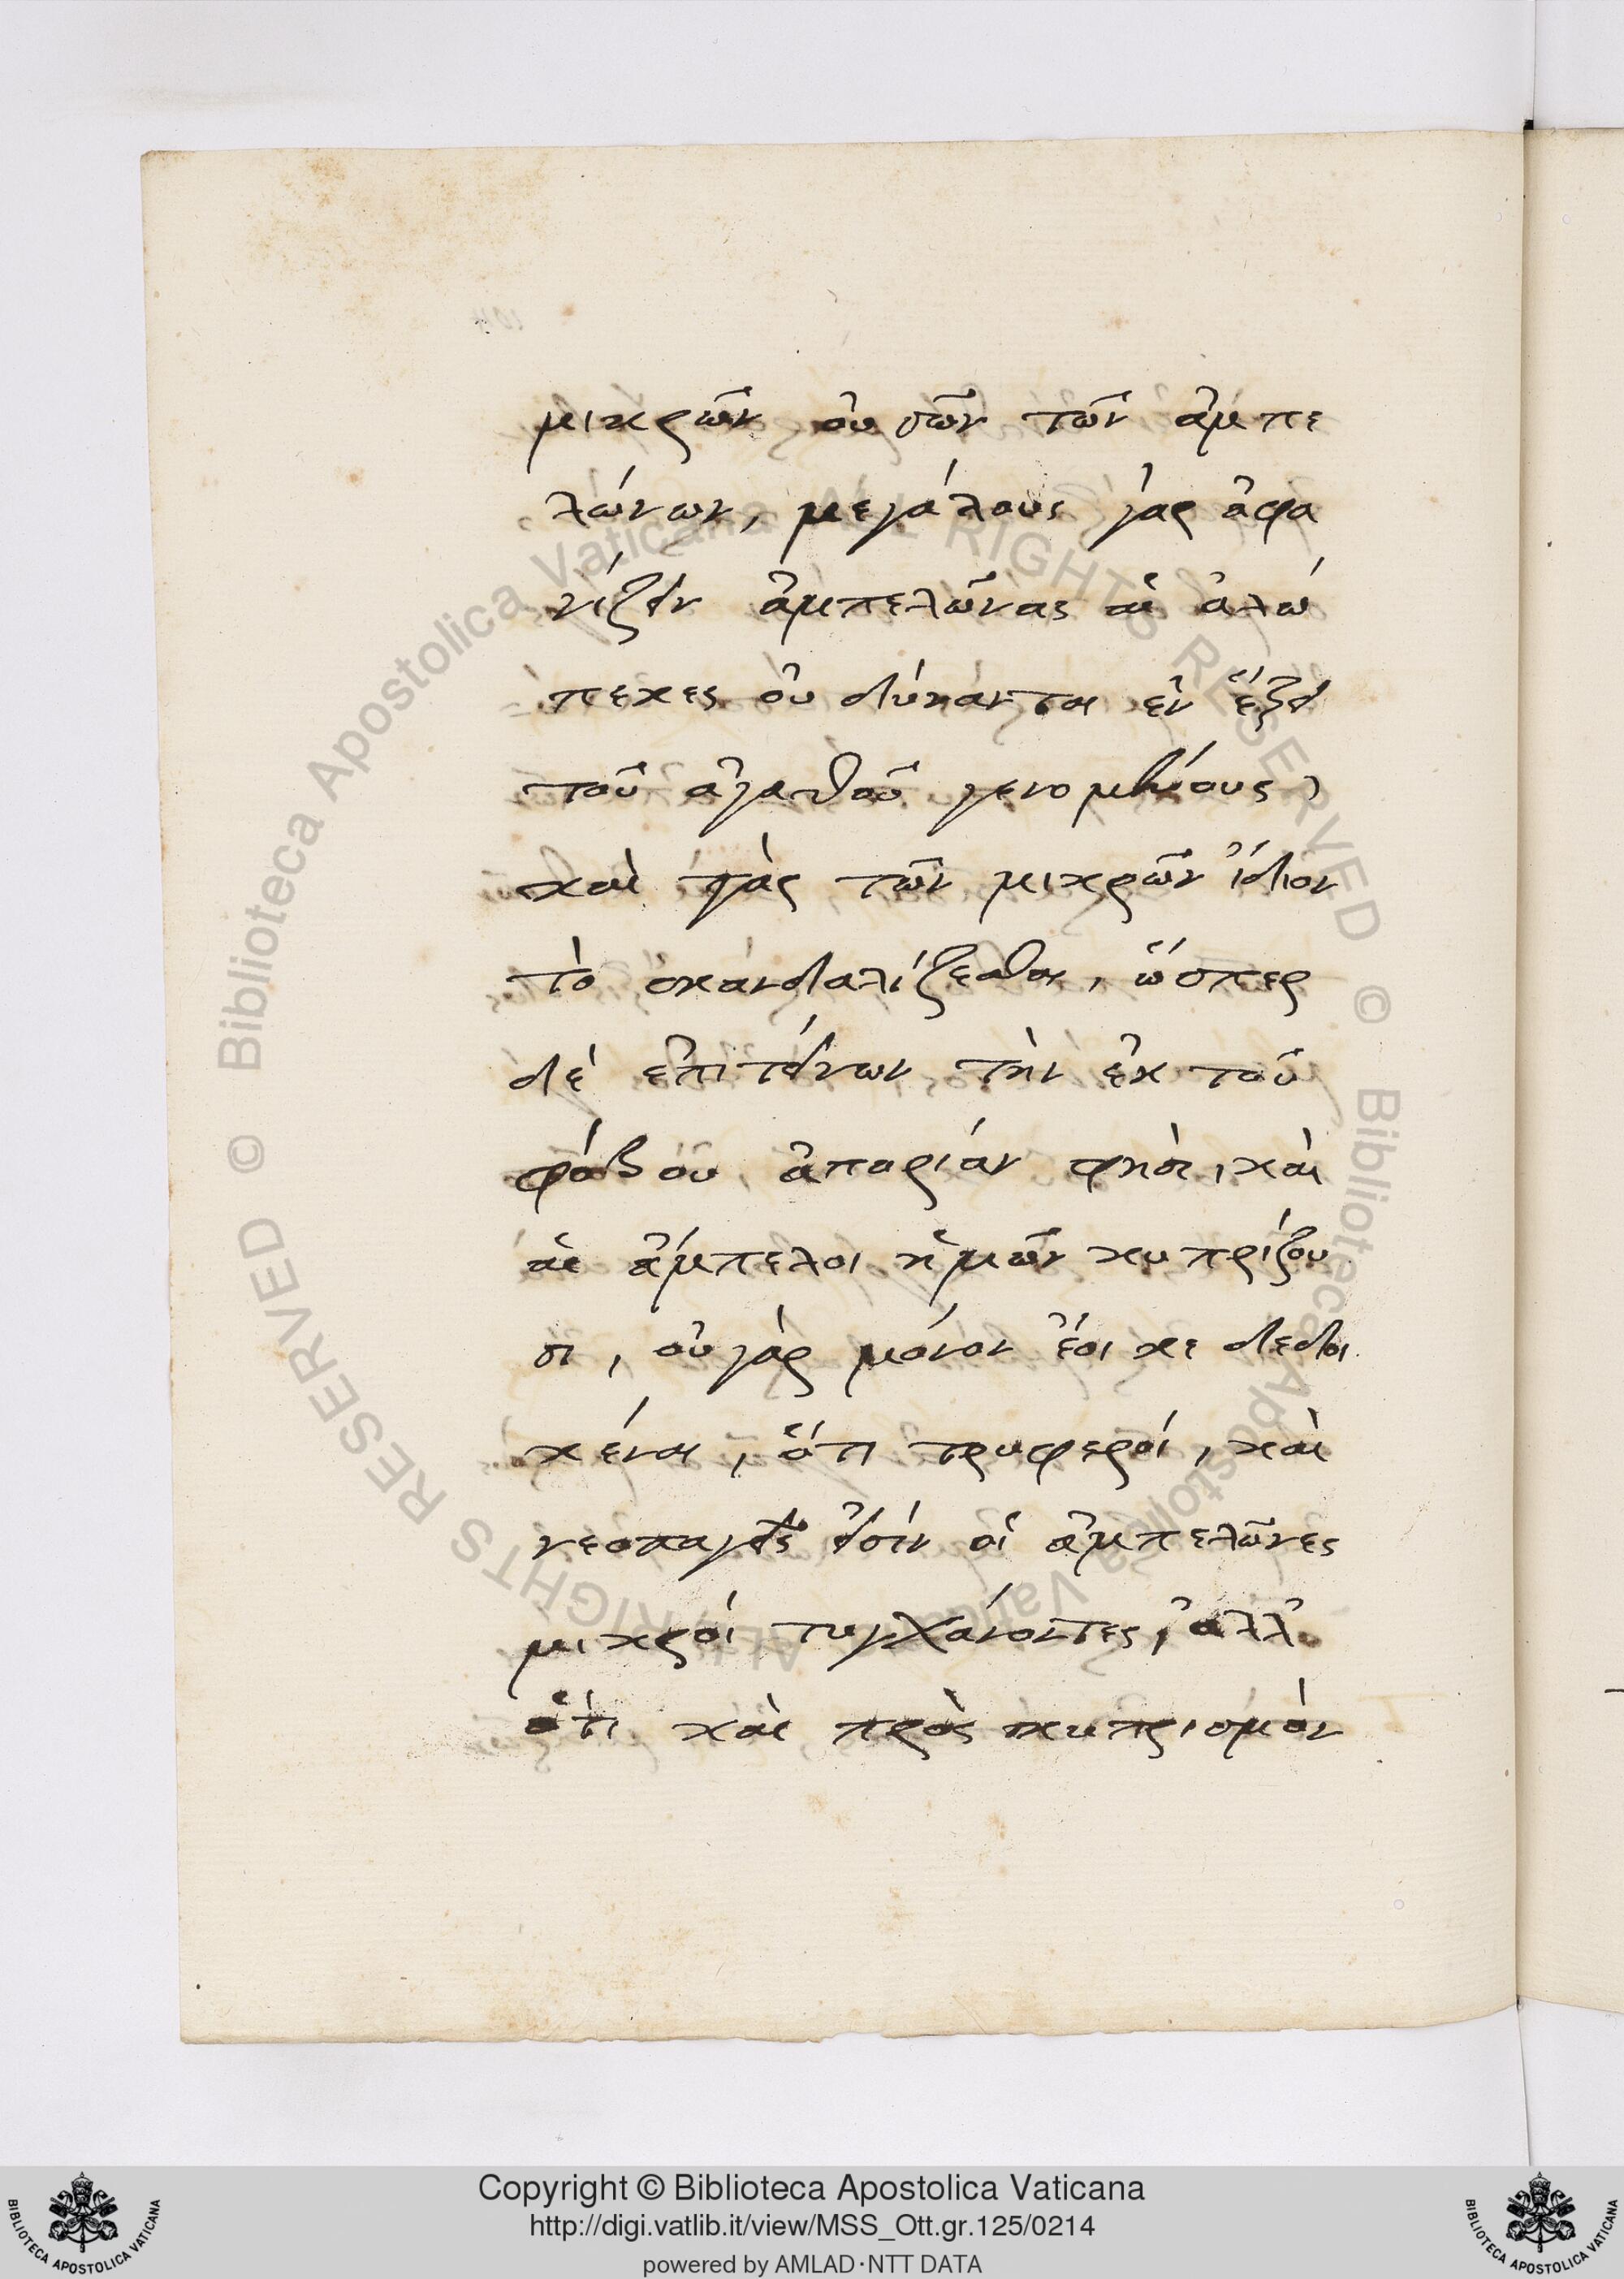 μικρῶν οὐσῶν τῶν ἀμπε
λώνων, μεγάλους γὰρ ἀφα
νίζειν ἀμπελῶνας αἱ ἀλώ
πεκες οὐ δύνανται ἐν ἕξει
τοῦ ἀγαθοῦ γενομένους,
καὶ γὰρ τῶν μικρῶν ἴδιον
τὸ σκανδαλίζεσθαι, ὥσπερ
δὲ ἐπιτείνων τὴν ἐκ τοῦ
φόβου ἀπορίαν φησὶ, καὶ
αἱ ἄμπελοι ἡμῶν κυπρίζου
σι, οὐ γὰρ μόνον ἔοικε δεδοι
κέναι, ὅτι τρυφεροί, καὶ
νεοπαγεῖς εἰσὶν οἱ ἀμπελῶνες
μικροί τυγχάνοντες, ἀλλ'
ὅτι καὶ πρὸς κυπρισμὸν
Copyright © Biblioteca Apostolica Vaticana
http://digi.vatlib.it/view/MSS_Ott.gr.125/0214
powered by AMLAD·NTT DATA
BIBLIOTECA APOSTOLICA VATICANA
BIBLIOTECA APOSTOLICA VATICANA
© Biblioteca Apostolica Vaticana ALL RIGHTS RESERVED
© Biblioteca Apostolica Vaticana ALL RIGHTS RESERVED